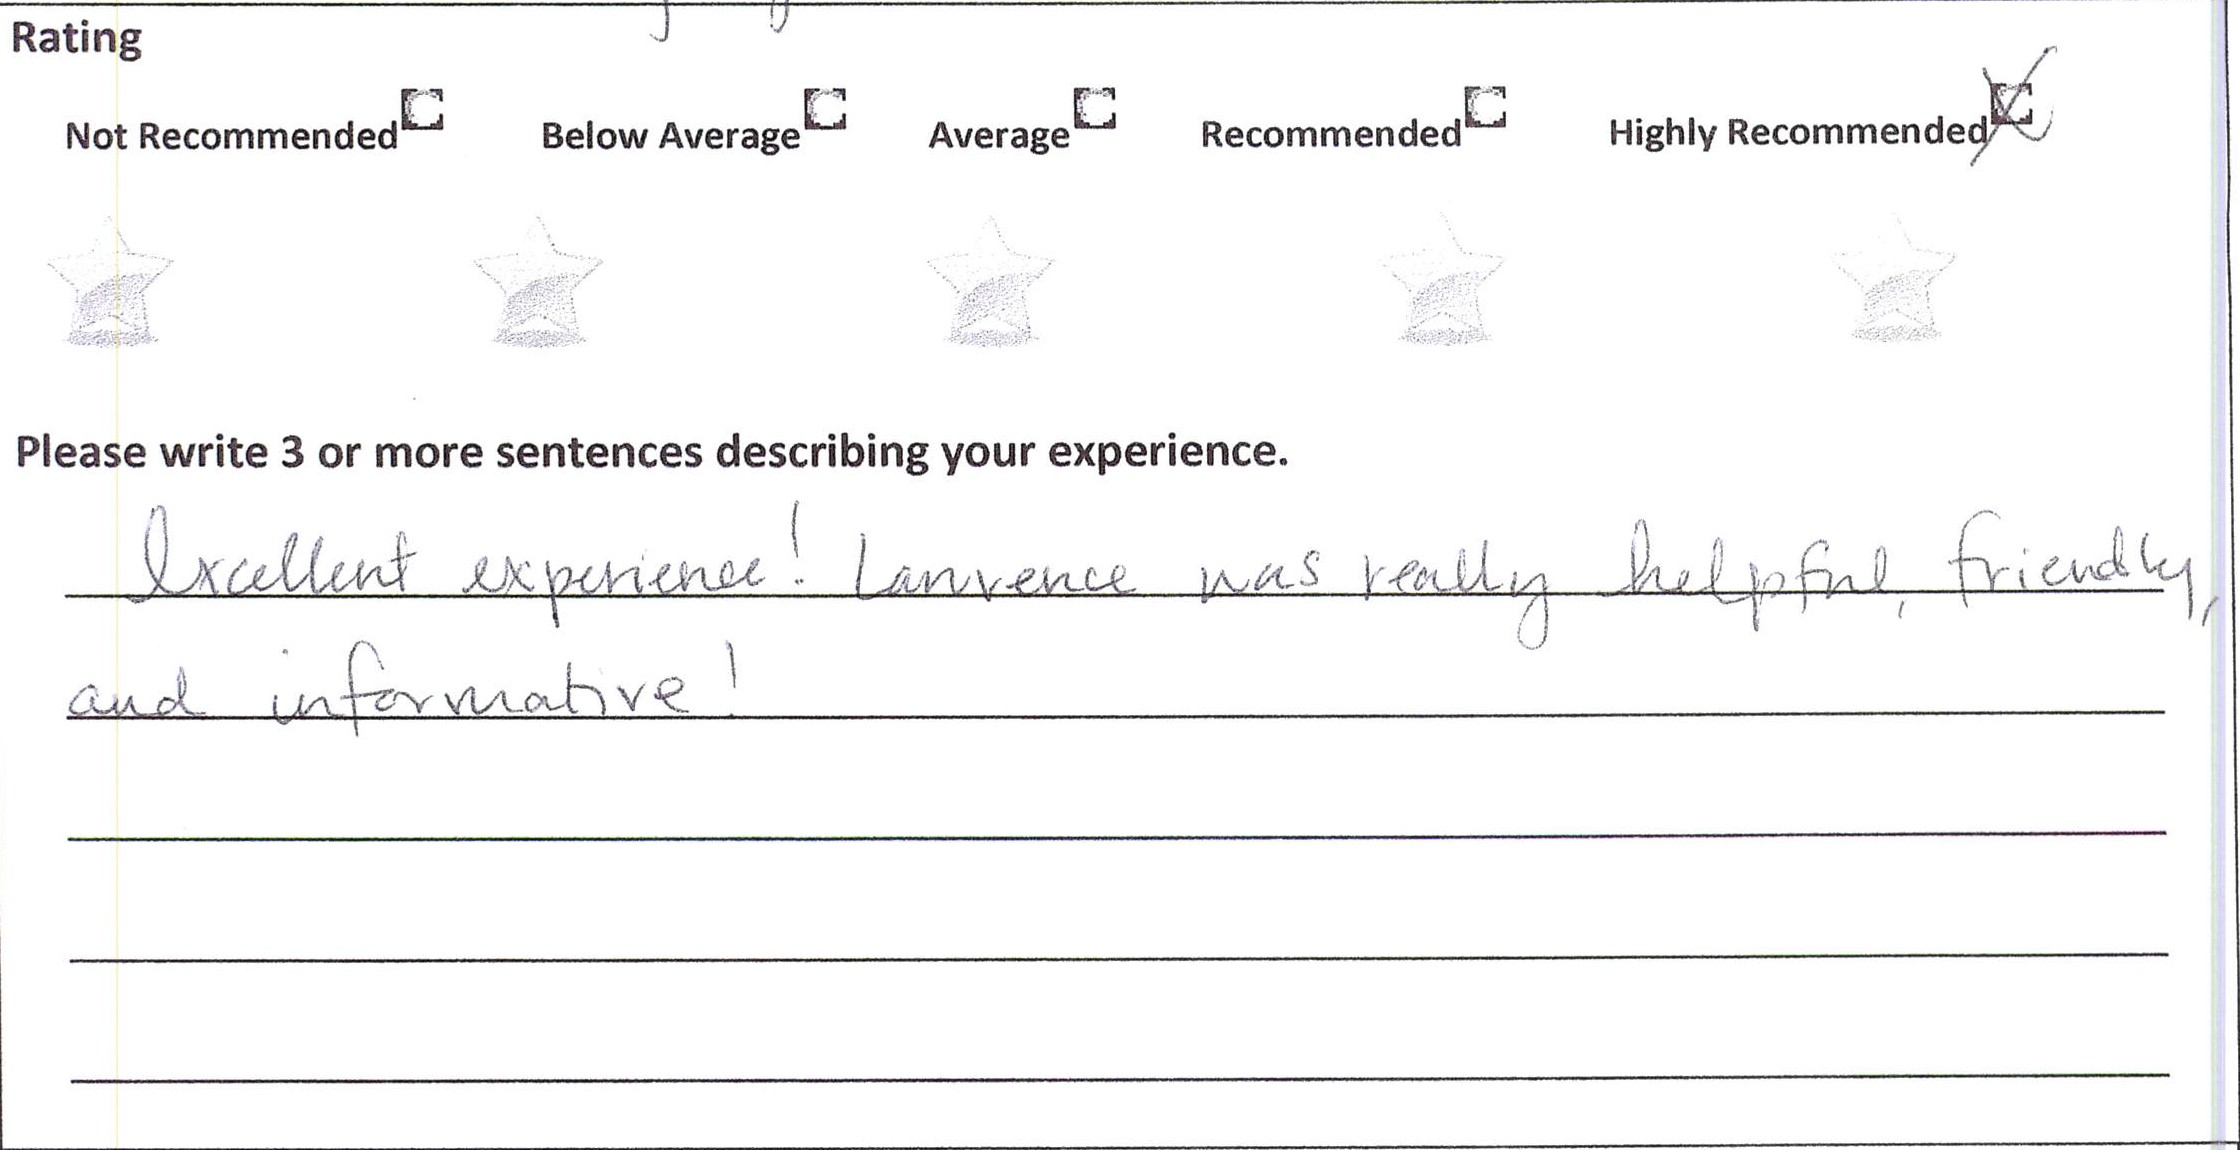 Rating
Not Recommended Below Average Average Recommended Highly Recommended
Please write 3 or more sentences describing your experience.
Excellent experience! Lawrence was really helpful, friendly,
and informative!